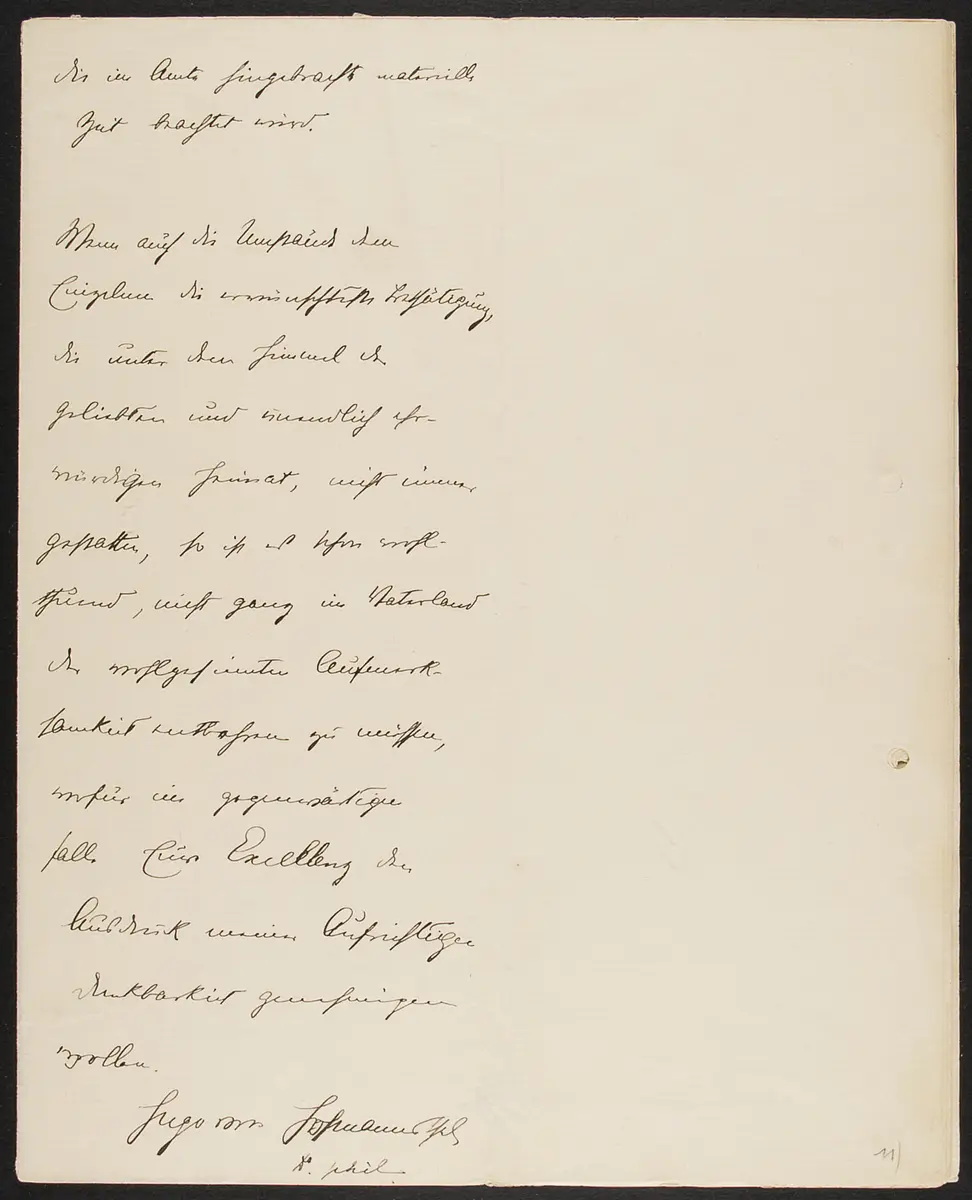 die im Amte hingebrachte materielle
Zeit brachten wird.
Wenn auch die Umstände dem
Einzelnen die erwünschteste Bethätigung,
die unter dem Himmel der
geliebten und unendlich ehr-
würdigen Heimat, nicht immer
gestatten, so ist es schon wohl-
thuend, nicht ganz im Vaterland
der wohlgesinnten Aufmerk-
samkeit entbehren zu müssen,
wofür im gegenwärtigen
Falle Eure Excellenz den
Ausdruck meiner Aufrichtigen
Dankbarkeit genehmigen
wollen.
Hugo von Hofmannsthal
Dr. phil.
11)